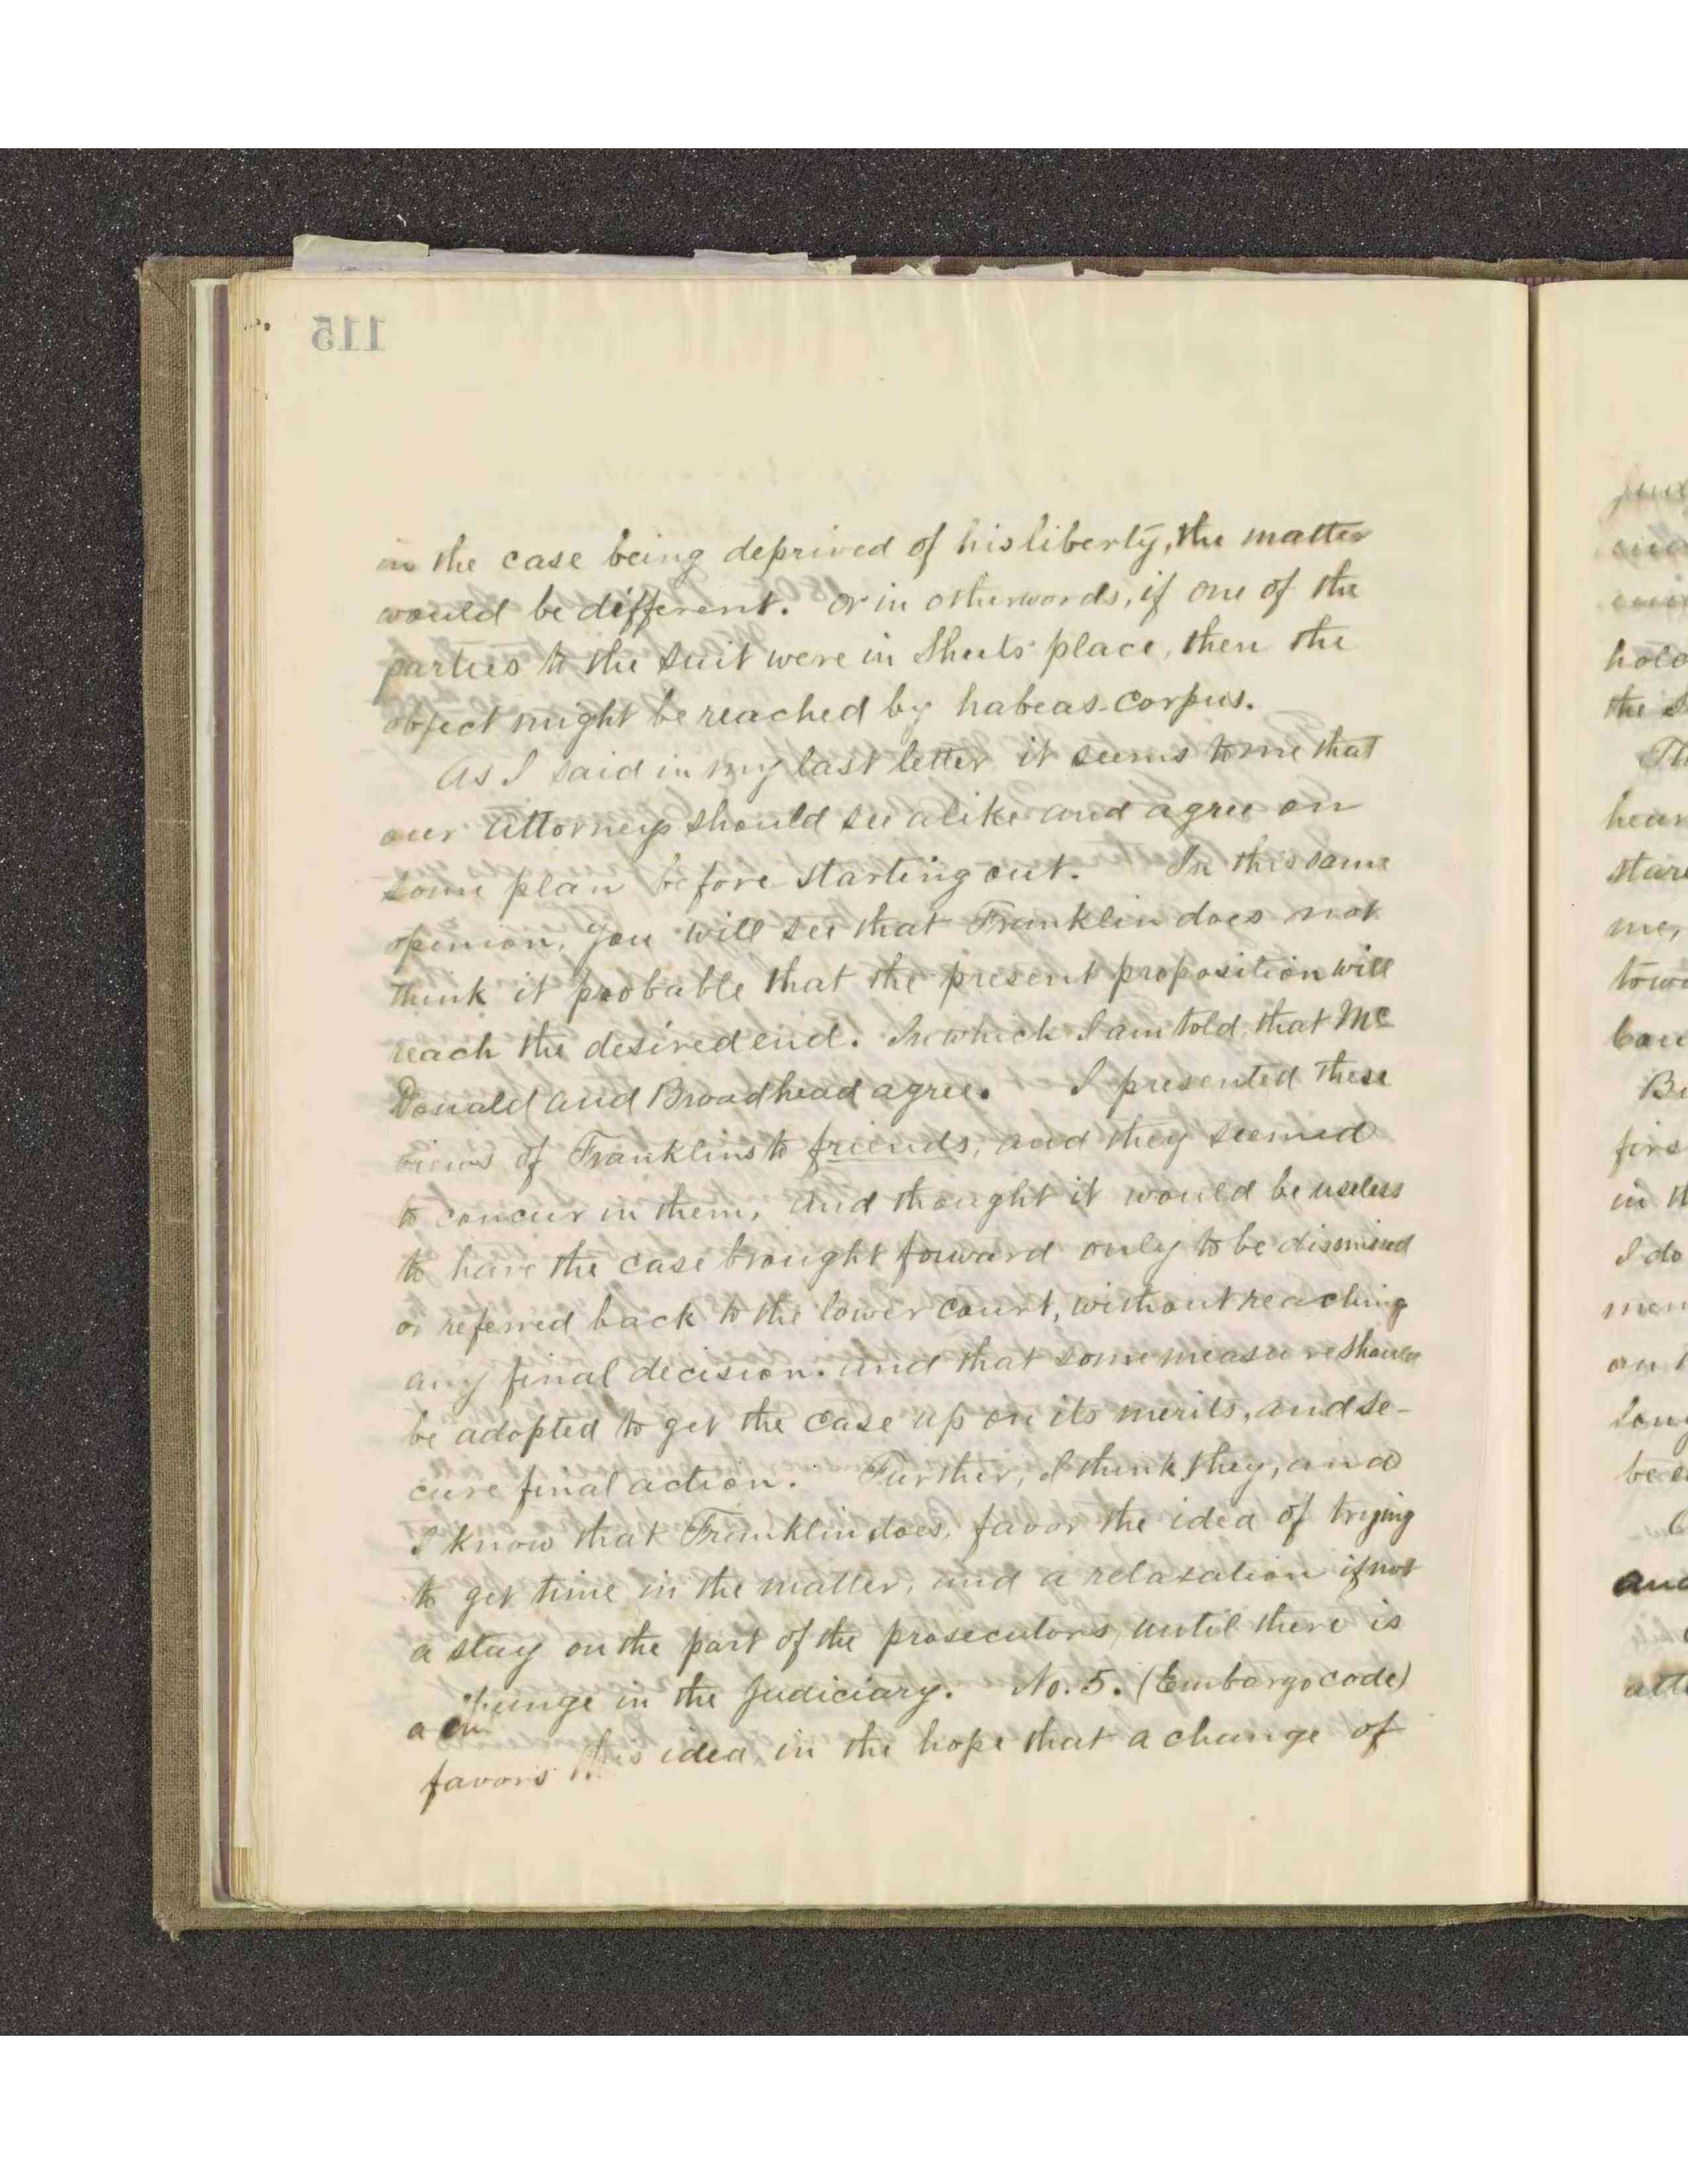 115
in the case being deprived of his liberty, the matter
would be different. or in otherwords, if one of the
parties to the suit were in Sheets' place, then the
object might be reached by habeas-corpus.
As I said in my last letter it seems to me that
our attorneys should see alike and agree on
some plan before starting out. In this same
opinion, you will see that Franklin does not
think it probable that the present proposition will
reach the desired end. In which I am told that Mc
Donald and Broadhead agree. I presented these
views of Franklins to friends, and they seemed
to concur in them, and thought it would be useless
to have the case brought forward only to be dismissed
or referred back to the lower court, without reaching
any final decision. and that some measure should
be adopted to get the case up on its merits, and se-
cure final action. Further, I think they, and
I know that Franklin does, favor the idea of trying
to get time in the matter, and a relaxation if not
a stay on the part of the prosecutors, until there is
a change in the Judiciary. No. 5. (Embargo code)
favors this idea, in the hope that a change of
hold
the
me,
in
I do